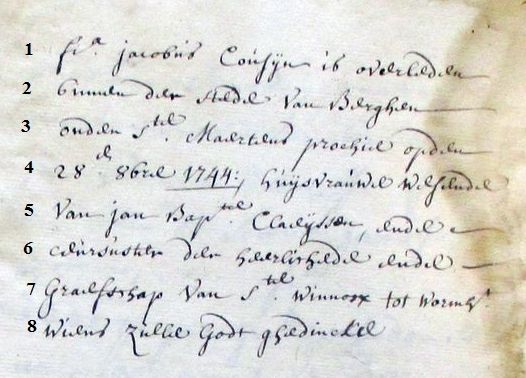 1 f^a. jacobus Cousyn is overleden
2 binnen der stede van Berghen
3 onder S^te. Maertens prochie op den
4 28^en. 8bre 1744:, huysvrauwe wesende
5 Van jan Bap^te Claeyssen, ende
6 ceurs'uster der heerlichede ende
7 Graefschap van S^te. Winnox tot Wormh^t.
8 Wiens zulle Godt ghedincke